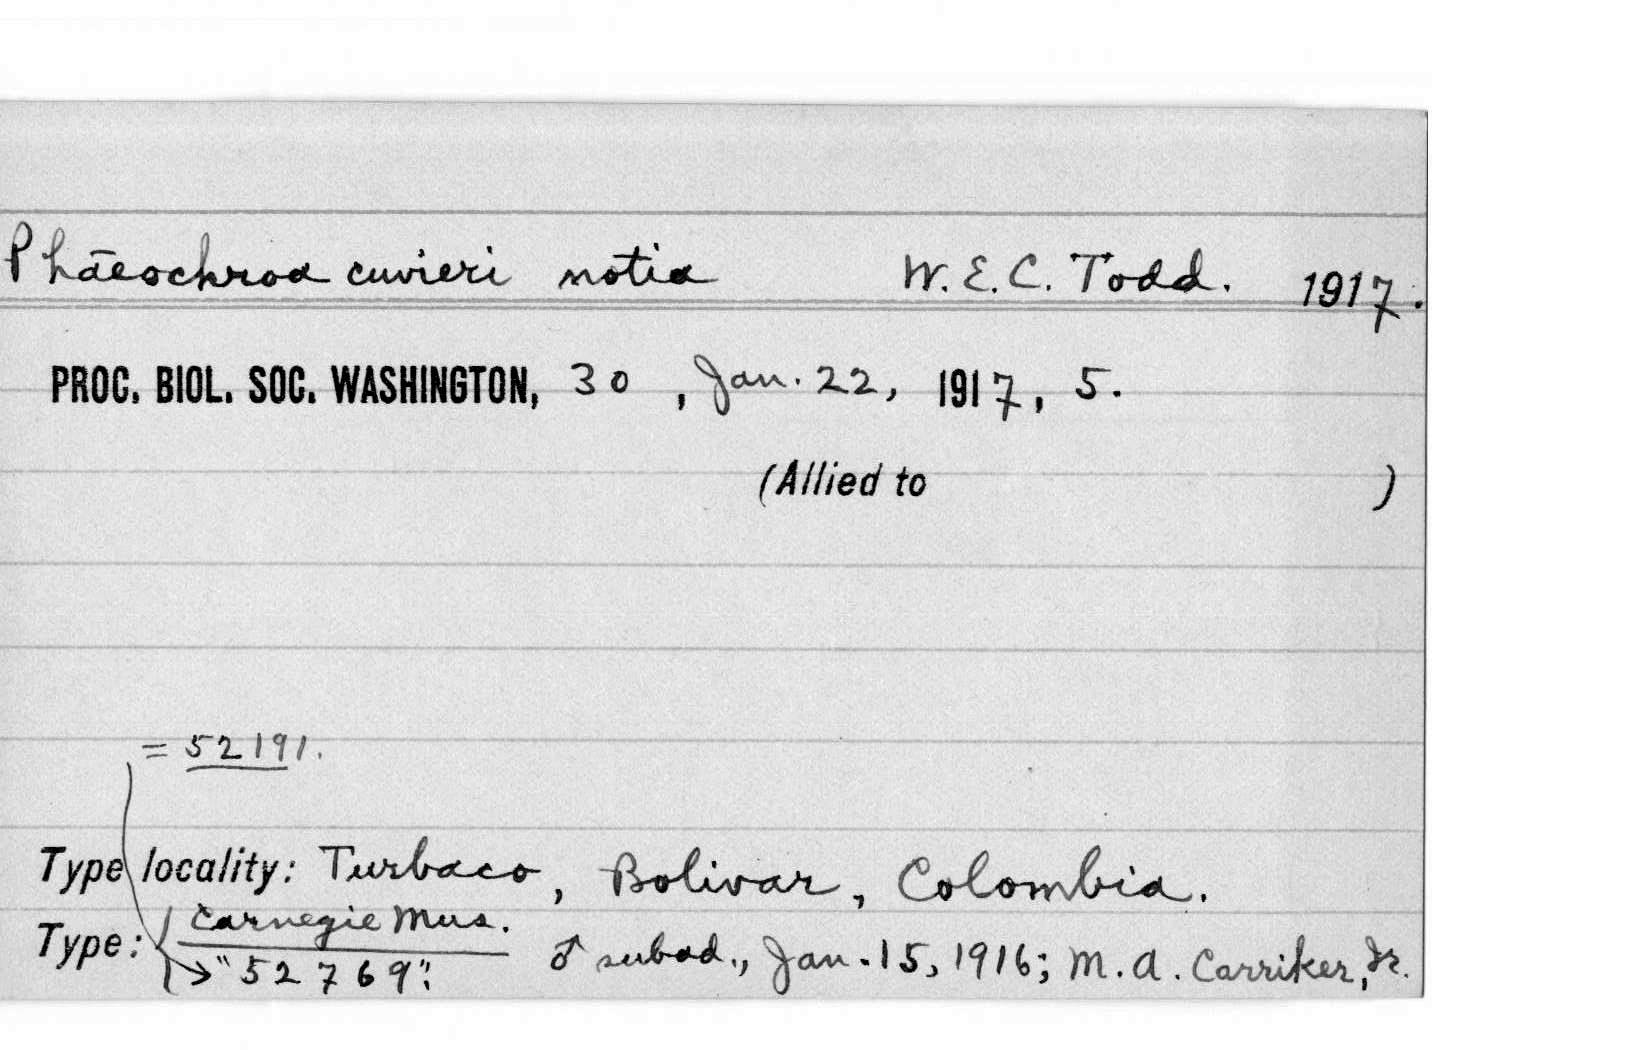 Phāeochroa cuvieri notia W.E.C. Todd. 1917.
PROC. BIOL. SOC. WASHINGTON, 30, Jan. 22, 1917, 5.
(Allied to )
= 52191.
Type locality: Turbaco, Bolivar, Colombia.
Type: Carnegie Mus.
→"52769"; ♂ subad., Jan. 15, 1916; M.A. Carriker, Jr.